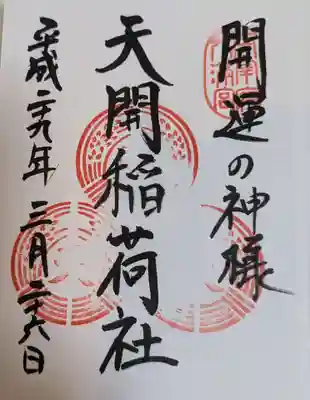 開運の神様
天開稲荷社
平成二十九年三月二十六日